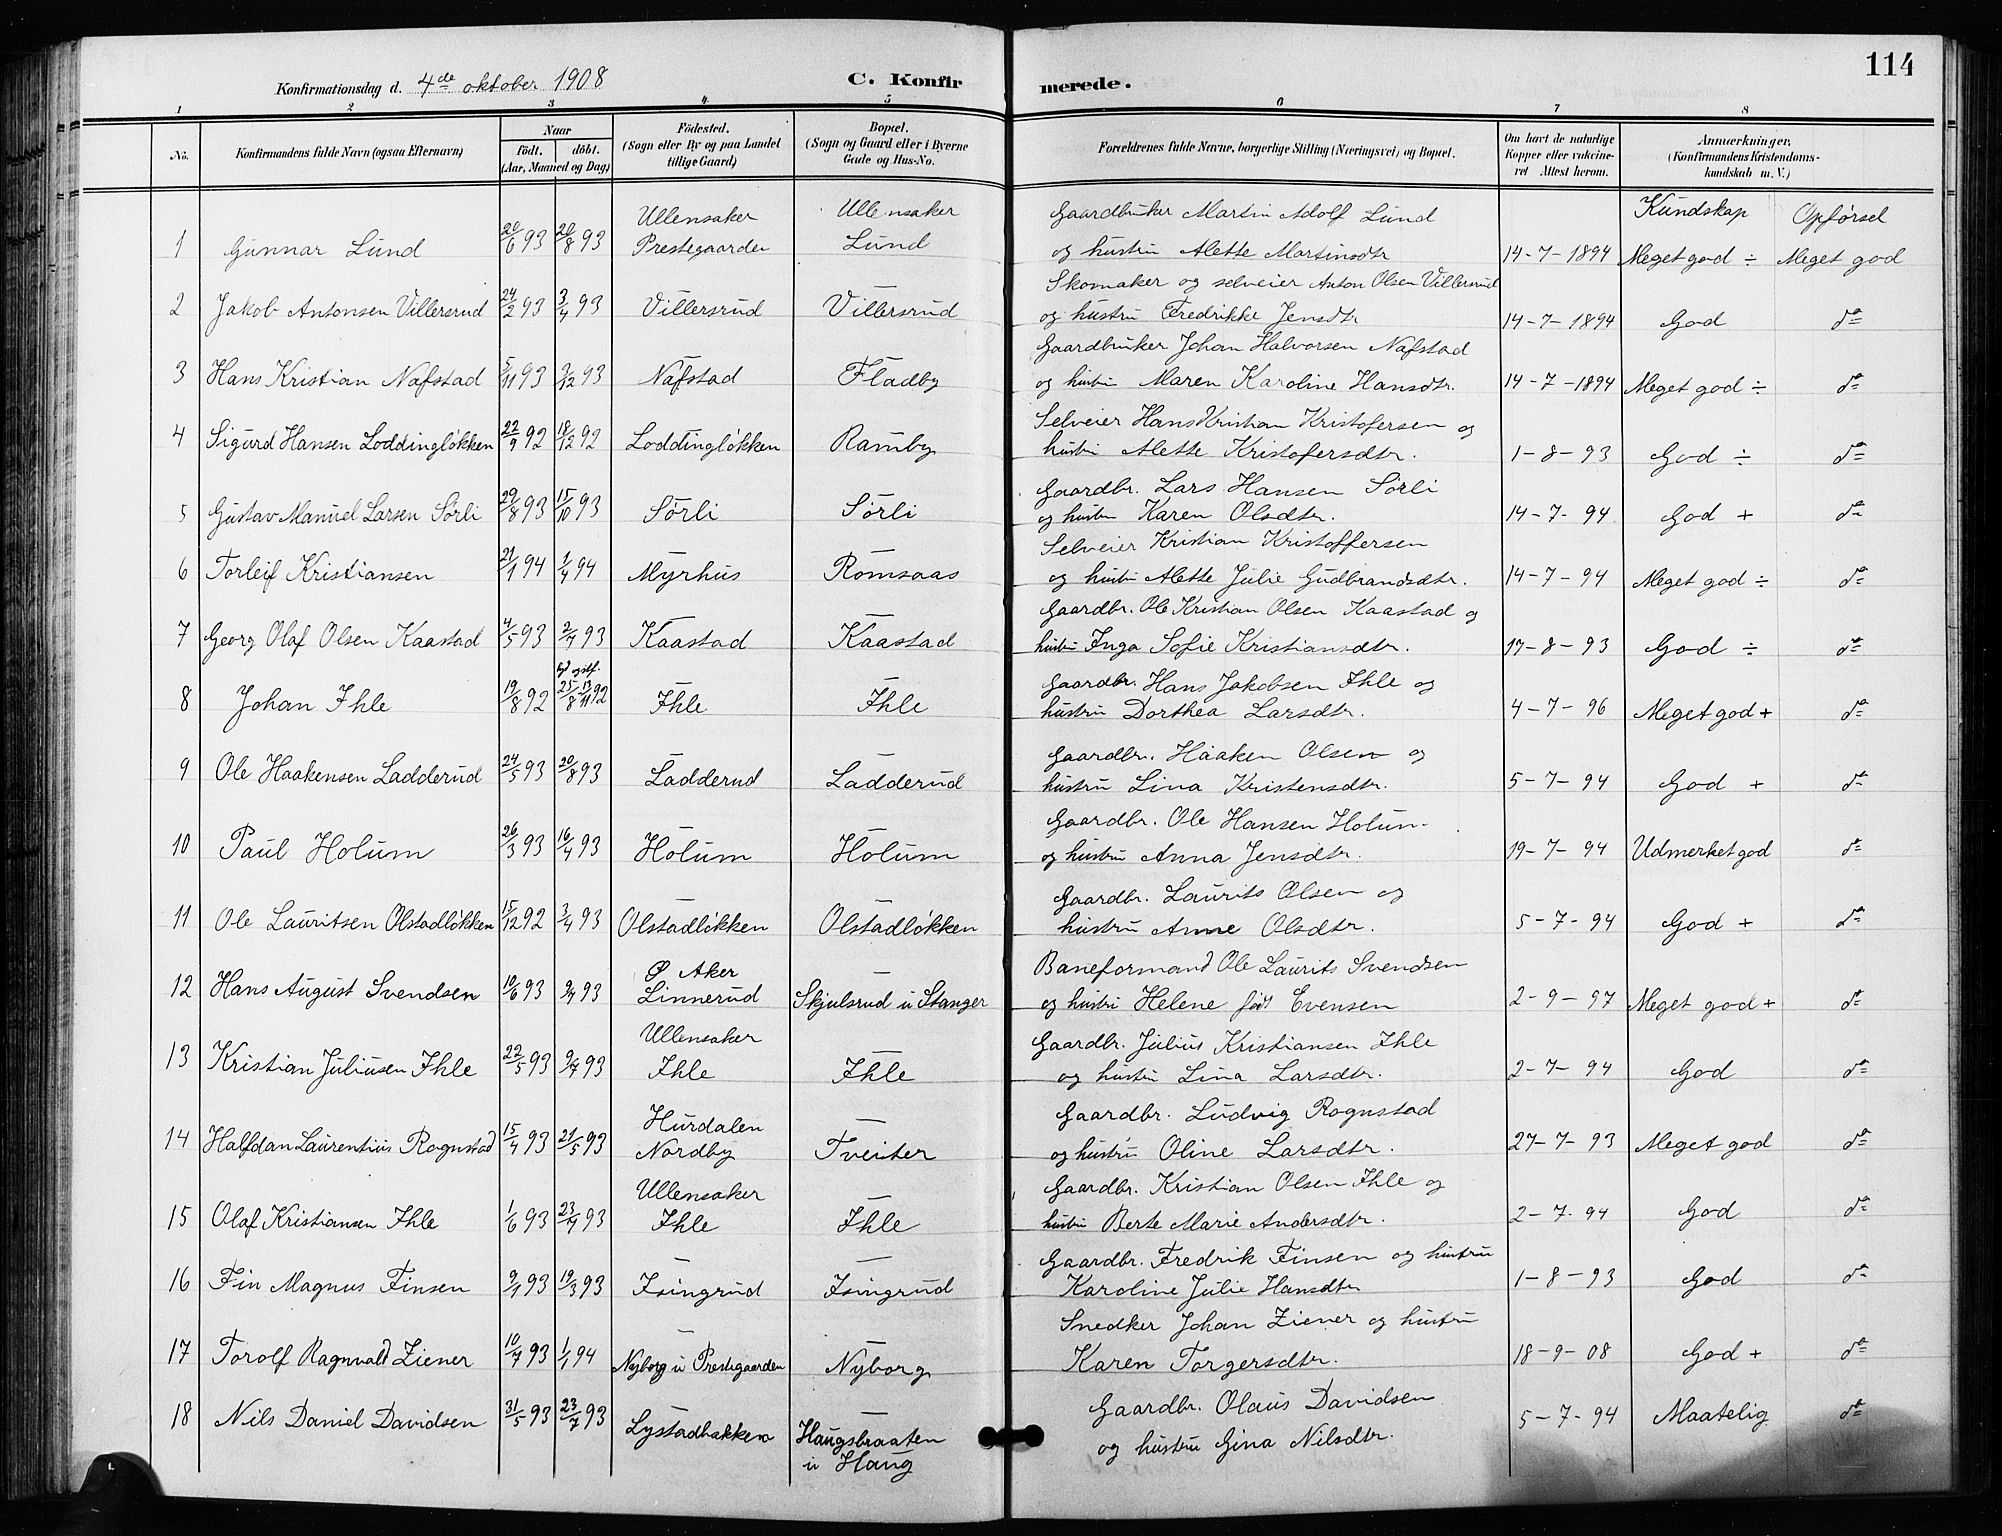 114
Konfirmationsdag d. 4de oktober 1908 C. Konfirmerede.
1 2 3 4 5 6 7 8
No. Konfirmandens fulde Navn (ogsaa Efternavn) Naar født. døbt. (Aar, Maaned og Dag) Fødested. (Sogn eller By og paa Landet tillige Gaard) Bopæl. (Sogn og Gaard eller i Byerne Gade og Hus-No.) Forældrenes fulde Navne, borgerlige Stilling (Næringsvei) og Bopæl. Om havt de naturlige Kopper eller vakcineret Attest herom. Anmærkninger, (Konfirmandens Kristendomskundskab m. V.)
Kundskap Opførsel
1 Gunnar Lund 20/6 93 20/8 93 Ullensaker Prestegaarden Ullensaker Lund Gaardbruker Martin Adolf Lund og hustru Alette Martinsdtr 14-7-1894 Meget god ÷ Meget god
2 Jakob Antonsen Villersrud 24/2 93 3/4 93 Villersrud Villersrud Skomaker og selveier Anton Olsen Villersrud og hustru Fredrikke Jensdtr 14-7-1894 God do
3 Hans Kristian Nafstad 5/11 93 3/12 93 Nafstad Fladby Gaardbruker Johan Halvorsen Nafstad og hustru Maren Karoline Hansdtr. 14-7-1894 Meget god ÷ do
4 Sigurd Hansen Loddingløkken 22/9 92 18/12 92 Loddingløkken Ramby Selveier Hans Kristian Kristofersen og hustru Alette Kristofersdtr. 1-8-93 God ÷ do
5 Gustav Manuel Larsen Sørli 29/8 93 15/10 93 Sørli Sørli Gaardbr. Lars Hansen Sørli og hustru Karen Olsdtr. 14-7-94 God + do
6 Torleif Kristiansen 21/1 94 1/4 94 Myrhus Romsaas Selveier Kristian Kristoffersen og hustru Alette Julie Gudbrandsdtr. 14-7-94 Meget god ÷ do
7 Georg Olaf Olsen Kaastad 4/5 93 2/7 93 Kaastad Kaastad Gaardbr. Ole Kristian Olsen Kaastad og hustru Inga Sofie Kristiansdtr. 17-8-93 God ÷ do
8 Johan Ihle 19/8 92 25/8 13/11 92 Ihle Ihle Gaardbr. Hans Jakobsen Ihle og hustru Dorthea Larsdtr. 4-7-96 Meget god + do
9 Ole Haakensen Ladderud 24/5 93 20/8 93 Ladderud Ladderud Gaardbr. Haaken Olsen og hustru Lina Kristensdtr. 5-7-94 God + do
10 Paul Holum 26/3 93 16/4 93 Holum Holum Gaardbr. Ole Hansen Holum og hustru Anna Jensdtr. 19-7-94 Udmerket god do
11 Ole Lauritsen Olstadløkken 15/12 92 3/4 93 Olstadløkken Olstadløkken Gaardbr. Laurits Olsen og hustru Anne Olsdtr. 5-7-94 God + do
12 Hans August Svendsen 10/6 93 9/7 93 Ø Aker Linnerud Skjulsrud u Stanger Baneformand Ole Laurits Svendsen og hustru Helene født Evensen 2-9-97 Meget god + do
13 Kristian Juliusen Ihle 22/5 93 9/7 93 Ullensaker Ihle Ihle Gaardbr. Julius Kristiansen Ihle og hustru Lina Larsdtr. 2-7-94 God do
14 Halfdan Laurentius Rognstad 15/4 93 21/5 93 Hurdalen Nordby Tveiter Gaardbr. Ludvig Rognstad og hustru Oline Larsdtr. 27-7-93 Meget god do
15 Olaf Kristiansen Ihle 1/6 93 23/7 93 Ullensaker Ihle Ihle Gaardbr. Kristian Olsen Ihle og hustru Berte Marie Andersdtr. 2-7-94 God do
16 Fin Magnus Finsen 9/1 93 19/3 93 Isingrud Isingrud Gaardbr. Fredrik Finsen og hustru Karoline Julie Hansdtr 1-8-93 God do
17 Torolf Ragnvald Ziener 10/7 93 1/1 94 Nyborg u Prestegaarden Nyborg Snedker Johan Ziener og hustru Karen Torgersdtr. 18-9-08 God + do
18 Nils Daniel Davidsen 31/5 93 23/7 93 Lystadbakken Haugsbraaten u Haug Gaardbr. Olaus Davidsen og hustru Gina Nilsdtr. 5-7-94 Maatelig do